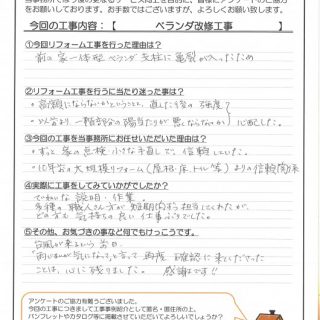 をお願いしております。お手数ではございますが、よろしくお願い致します。
今回の工事内容：【 ベランダ改修工事 】
①今回リフォーム工事を行った理由は？
前の家一体型ベランダ支柱に亀裂が入ったため
②リフォーム工事を行うに当たり迷った事は？
・高額にならないかということと、直した後の強度？
・以前より一階部分の陽当たりが悪くならないか 心配した。
③今回の工事を当事務所にお任せいただいた理由は？
・ずっと家の点検、小さな手直しで、信頼していた。
・10年前の大規模リフォーム(屋根・床・トイレ等)よりの信頼関係
④実際に工事をしてみていかがでしたか？
ていねいな説明・作業。
多種の職人さん方が短期間に担当してくれたが、
どの方も気持ちの良い仕事ぶりでした。
⑤その他、お気づきの事など何でもけっこうです。
台風が来るという当日、
"雨じまいが気になって"と言って再度確認に来て下さった
ことは、心に残りました。 感謝です!!
アンケートのご協力有難うございました。
今回の工事につきまして工事事例紹介として匿名・居住外の上、
パンフレットやカタログ等に掲載させていただいてよろしいでしょうか？